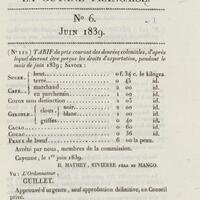 LA GUYANE FRANÇAISE.
N° 6.
JUIN 1839.
(N° 111) TARIF du prix courant des denrées coloniales, d'après
lequel devront être perçus les droits d'exportation, pendant le
mois de juin 1839; SAVOIR :
SUCRE. brut. 0 f. 34 c. le kilogra.
terré. 0 45 id.
CAFÉ. marchand. id.
en parchemin 1 00 id.
COTON sans distinction 1 05 id.
GIROFLE. clous noir. id.
blanc. 1 00 id.
griffes. 0 40 id.
CACAO. 0 60 id.
ROUCOU. 0 90 id.
PEAUX de bœuf. 6 00 la peau.
Arrêté par nous, membres de la commission.
Cayenne, le 1er juin 1839.
MATHEY, RIVIERRE et MANGO.
Vu : L'Ordonnateur,
GUILLET.
Approuvé d'urgence, sauf approbation définitive, en Conseil
privé.